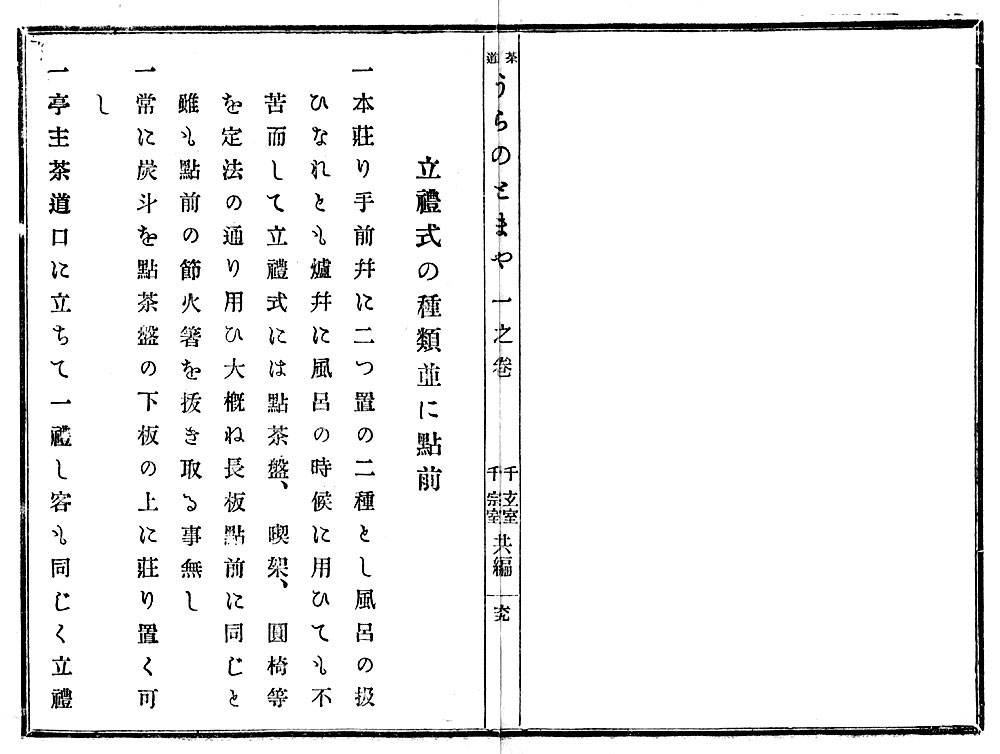 茶道 うらのとまや 一之卷 千玄室 千宗室 共編 六九
立禮式の種類並に點前
一本莊り手前幷に二つ置の二種とし風呂の扱
ひなれとも爐幷に風呂の時候に用ひても不
苦而して立禮式には點茶盤、喫架、圓椅等
を定法の通り用ひ大概ね長板點前に同じと
雖も點前の節火箸を拔き取る事無し
一常に炭斗を點茶盤の下板の上に莊り置く可
し
一亭主茶道口に立ちて一禮し客も同じく立禮